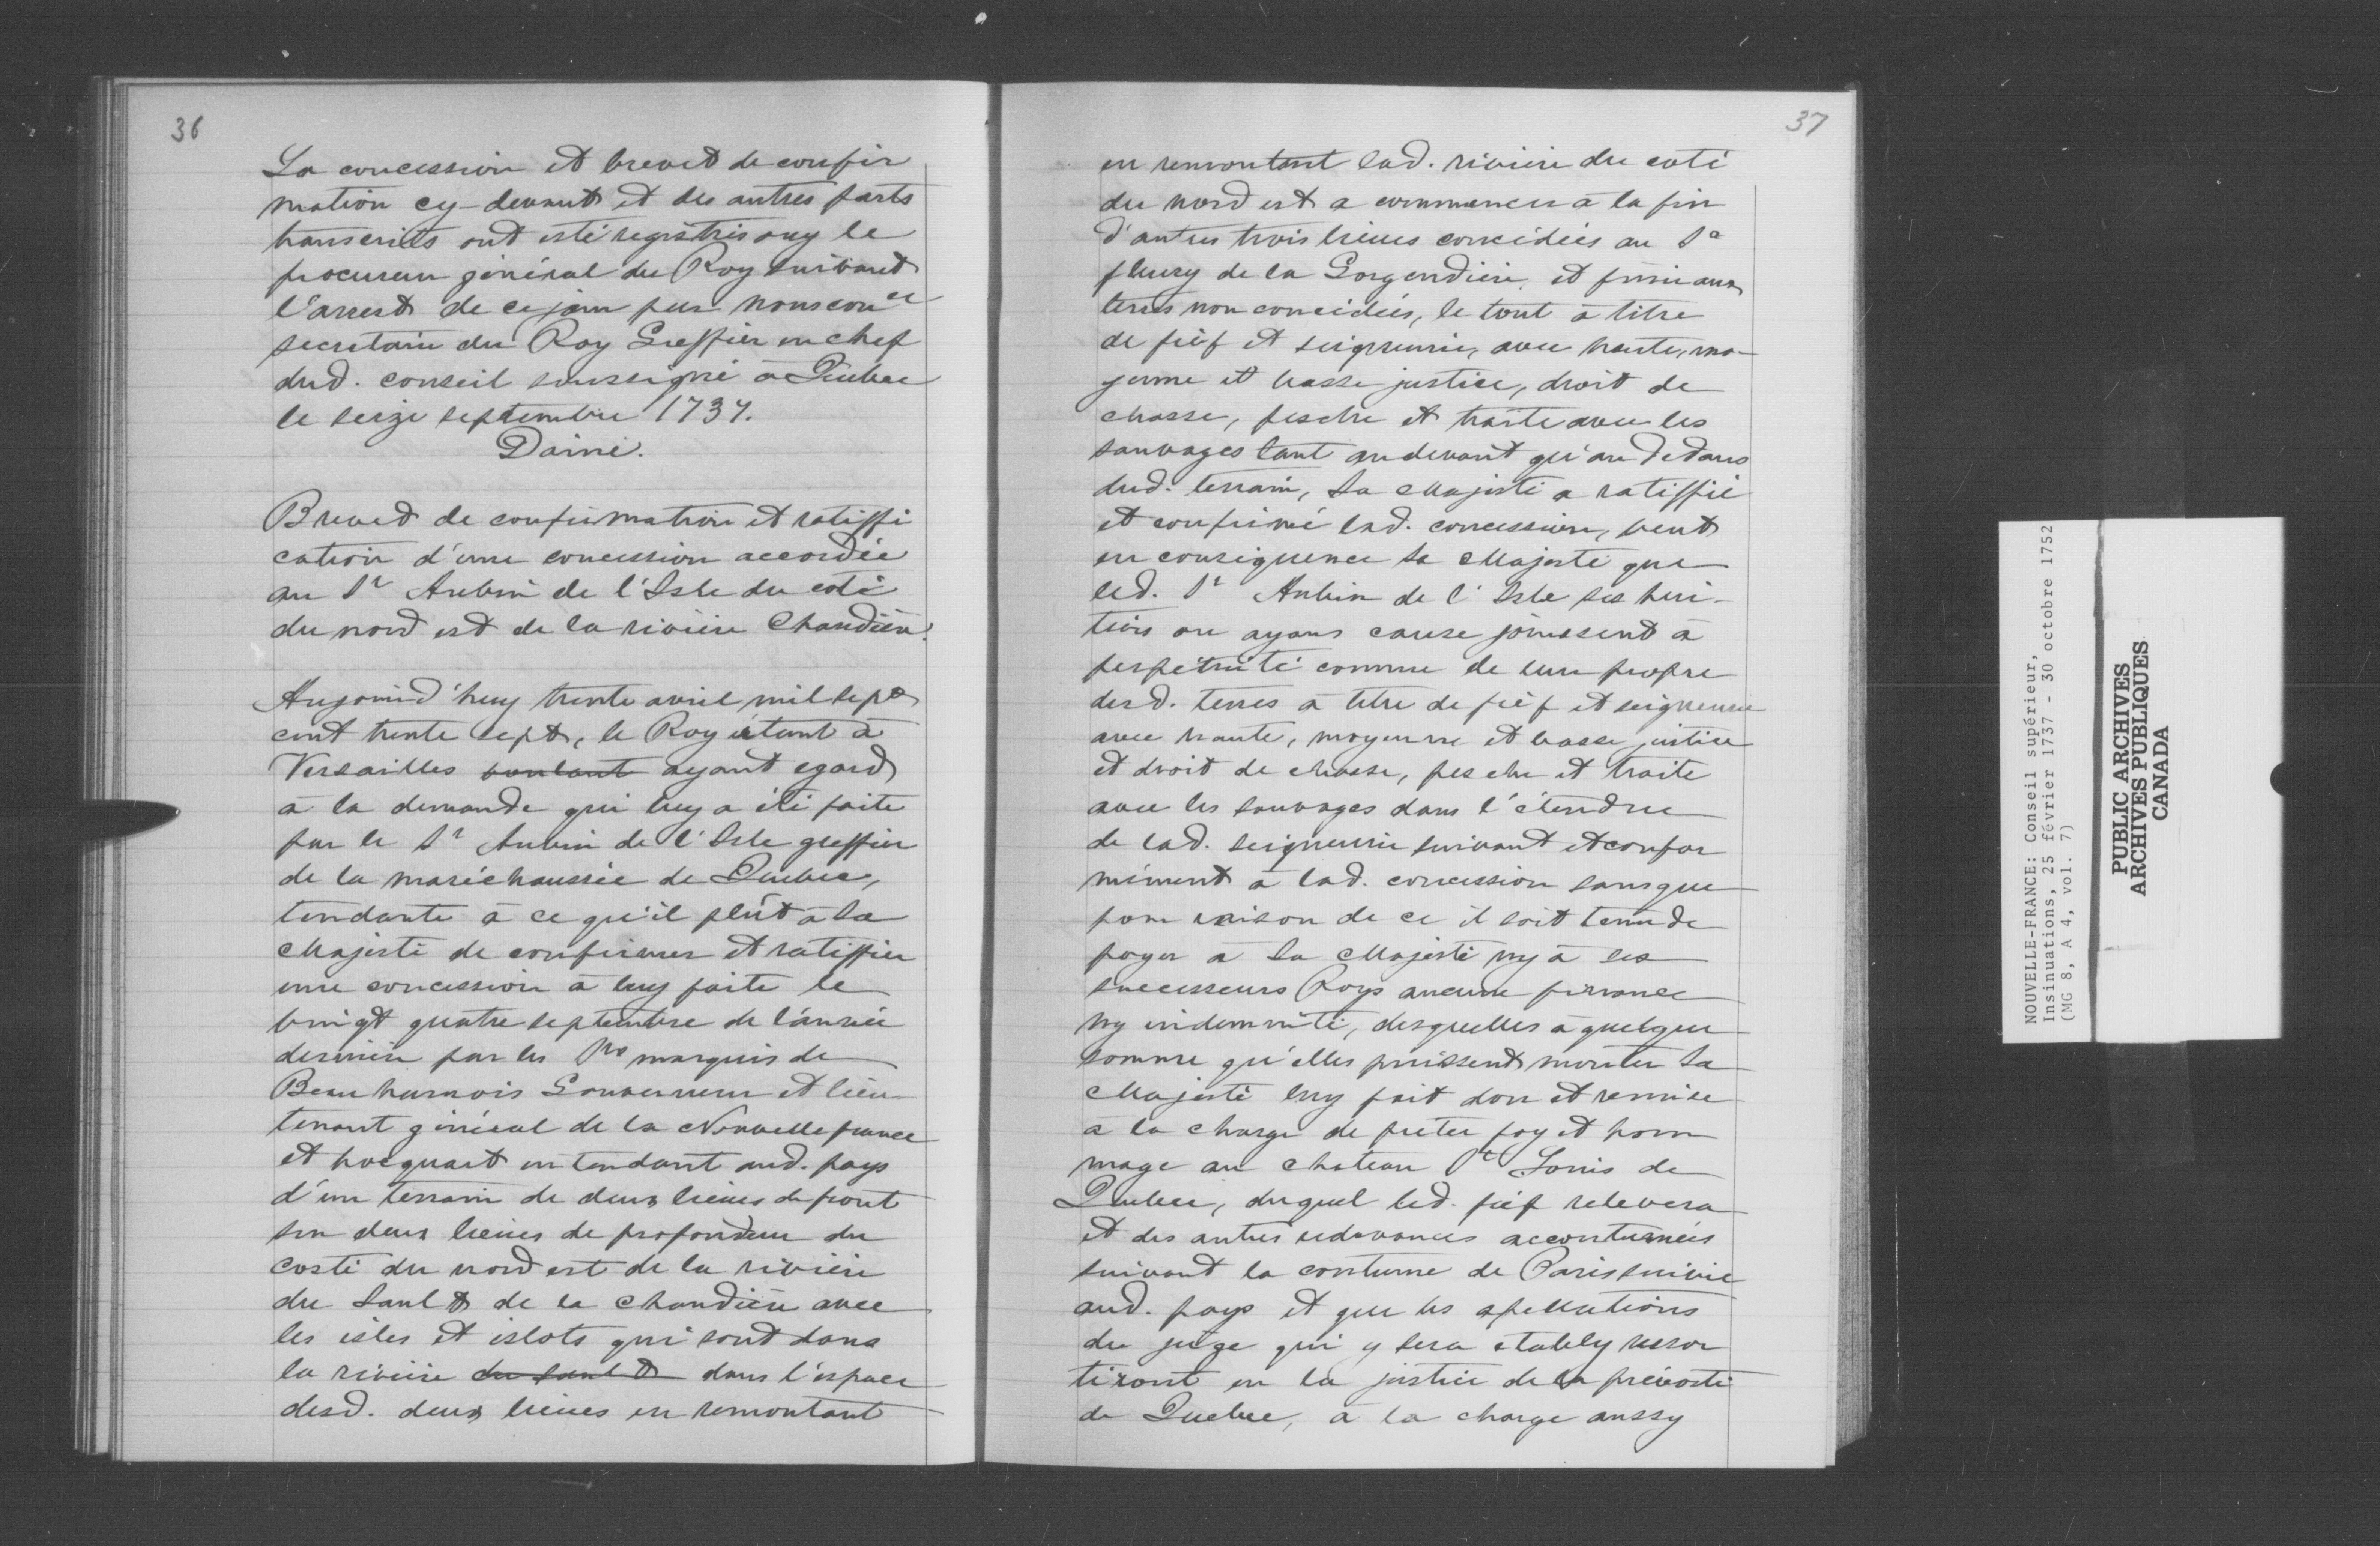 36
La concession et brevet de confir
mation cy-devant et des autres parts
transcrits ont esté registrés ouy le
procureur général du Roy suivant
l'arrest de ce jour par nous con.er
secretaire du Roy Greffier en chef
dud. conseil soussigné à Québec
le seize septembre 1737.
Daine.
Brevet de confirmation et ratiffi
cation d'une concession accordée
au Sr Aubin de l'Isle du coté
du nord est de la rivière Chaudière.
Aujourd'huy trente avril mil sept
cent trente sept, le Roy étant à
Versailles voulant ayant egard
à la demande qui luy a été faite
par le Sr Aubin de l'Isle greffier
de la maréchaussée de Quebec,
tendante à ce qu'il plût à Sa
Majesté de confirmer et ratiffier
une concession à luy faite le
vingt quatre septembre de l'année
dernière par les Srs marquis de
Beauharnois Gouverneur et lieu
tenant général de la Nouvelle france
et hocquart intendant aud. pays
d'un terrain de deux lieues de front
sur deux lieues de profondeur du
costé du nord est de la rivière
du Sault de la Chaudière avec
les isles et islots qui sont dans
la rivière du sault dans l'espace
desd. deux lieues en remontant
37
en remontant lad. rivière du coté
du nord est a commencer à la fin
d'autres trois lieues concédées au Sr
fleury de la Gorgendière, et finir aux
terres non concédées, le tout à titre
de fief et seigneurie, avec haute, mo-
yenne et basse justice, droit de
chasse, pesche et traite avec les
sauvages tant au devant qu'au dedans
dud. terrain, Sa Majesté a ratiffié
et confirmé lad. concession, veut
en conséquence Sa Majesté que
led. Sr Aubin de l'Isle ses héri-
tiers ou ayans cause jouissent à
perpétuité comme de leur propre
desd. terres à titre de fief et seigneurie
avec haute, moyenne et basse justice
et droit de chasse, pesche et traite
avec les sauvages dans l'étendue
de lad. seigneurie suivant et confor
mément à lad. concession sans que
pour raison de ce il soit tenu de
payer à Sa Majesté ny à ses
successeurs Roys aucune finance
ny indemnité, desquelles à quelque
somme qu'elles puissent monter Sa
Majesté luy fait don et remise
à la charge de prêter foy et hom
mage au chateau St Louis de
Quebec, duquel led. fief relevera
et des autres redevances accoutumées
suivant la coutume de Paris suivie
aud. pays et que les apellations
du juge qui y sera etably ressor
tiront en la justice de la prévosté
de Quebec, à la charge aussy
NOUVELLE-FRANCE: Conseil supérieur,
Insinuations, 25 février 1737 - 30 octobre 1752
(MG 8, A 4, vol. 7)
PUBLIC ARCHIVES
ARCHIVES PUBLIQUES
CANADA